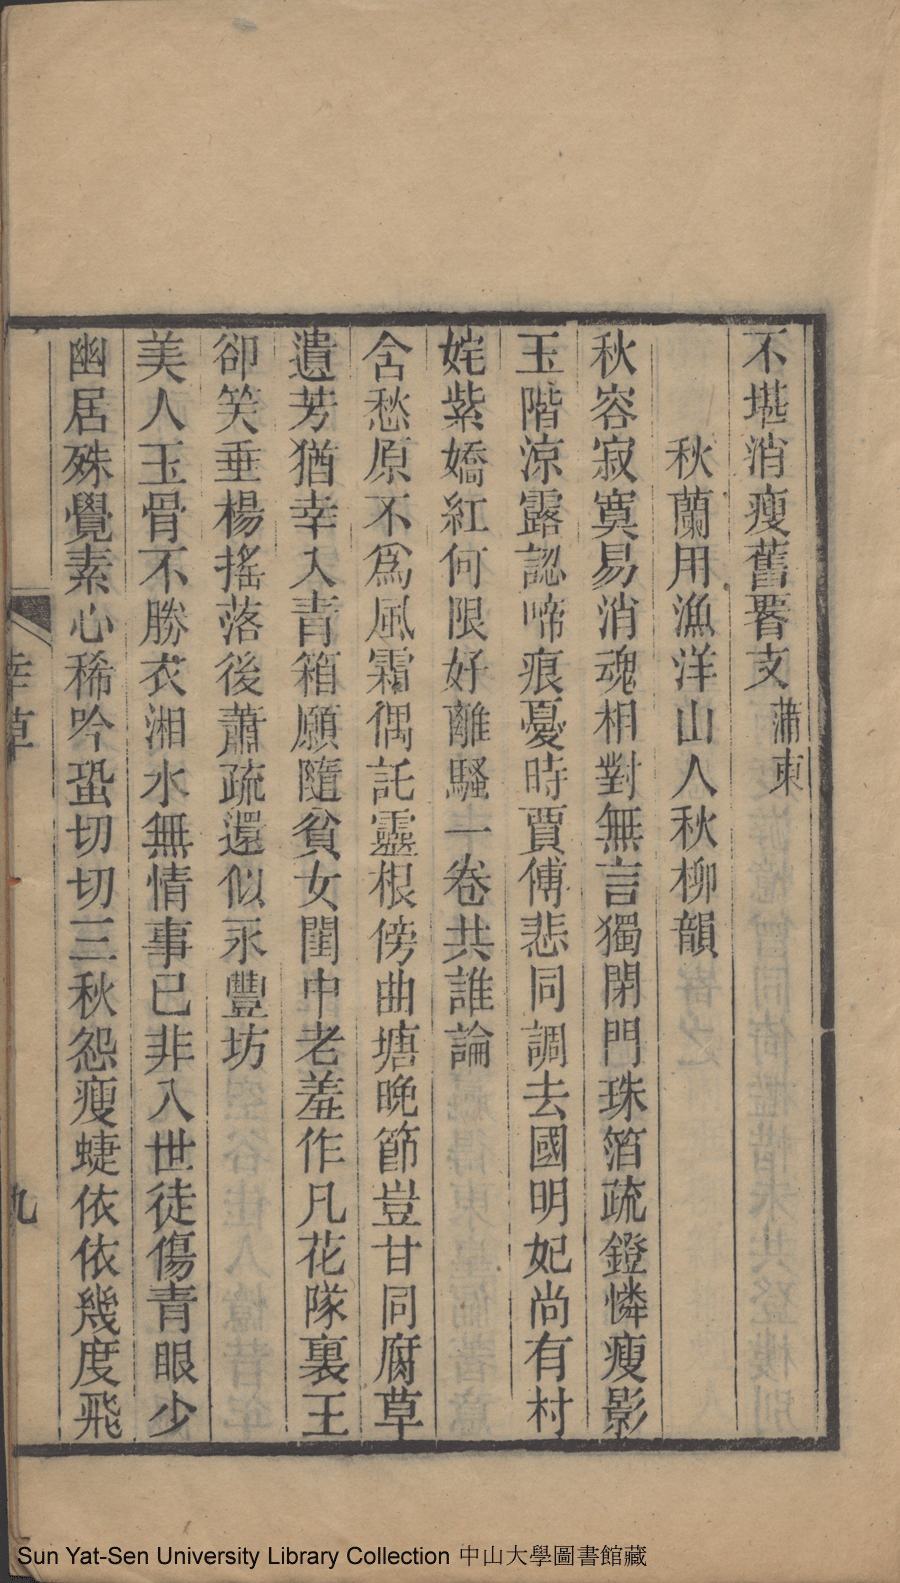 不堪消瘦舊腰支蒲東
秋蘭用漁洋山人秋柳韻
秋容寂寞易消魂相對無言獨閉門珠箔疏鐙憐瘦影
玉階涼露認啼痕憂時賈傅悲同調去國明妃尚有村
姹紫嬌紅何限好離騷一卷共誰論
含愁原不爲風霜偶託靈根傍曲塘晚節豈甘同腐草
遺芳猶幸入青箱願隨貧女閨中老羞作凡花隊裏王
卻笑垂楊搖落後蕭疏還似永豐坊
美人玉骨不勝衣湘水無情事已非入世徒傷青眼少
幽居殊覺素心稀吟蛩切切三秋怨瘦蜨依依幾度飛
草
九
Sun Yat-Sen University Library Collection 中山大學圖書館藏